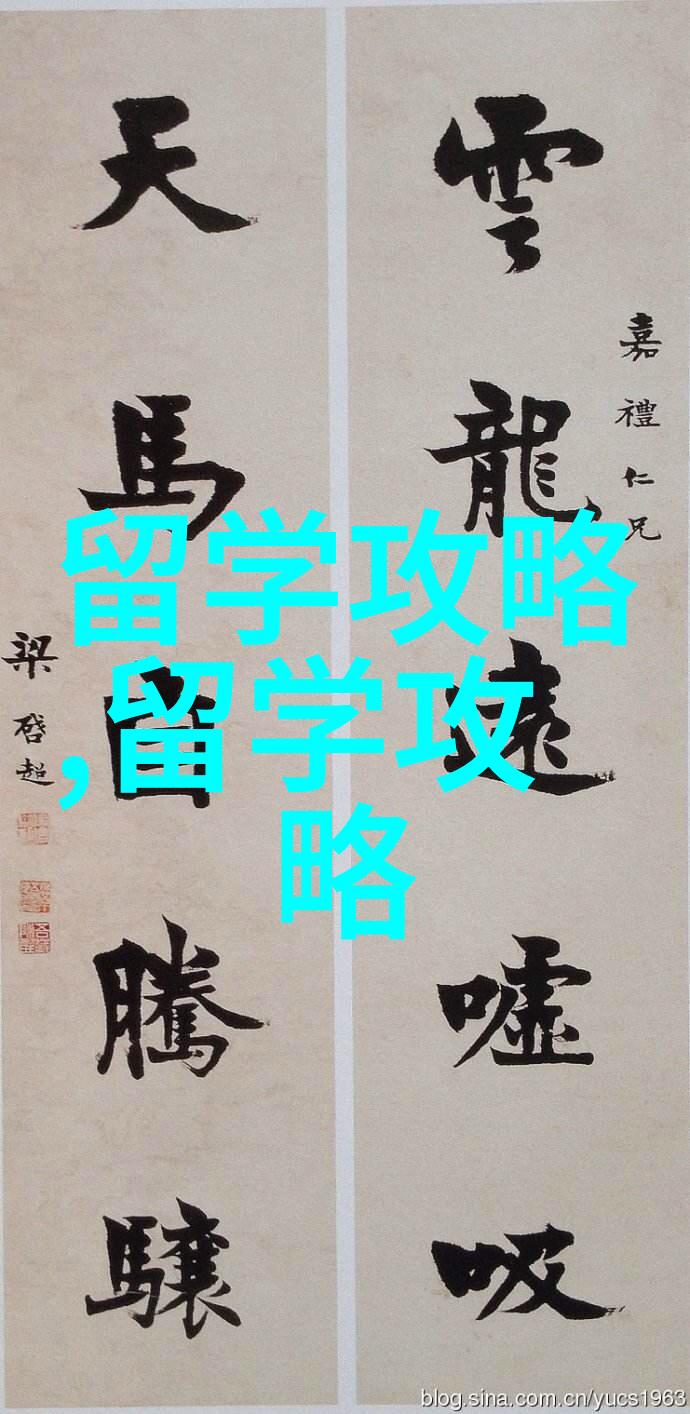 雲龍遠噓吸
嘉禮仁兄
天馬自騰驤
梁啓超
留学攻略
,留学攻
略
blog.sina.com.cn/yucs1963